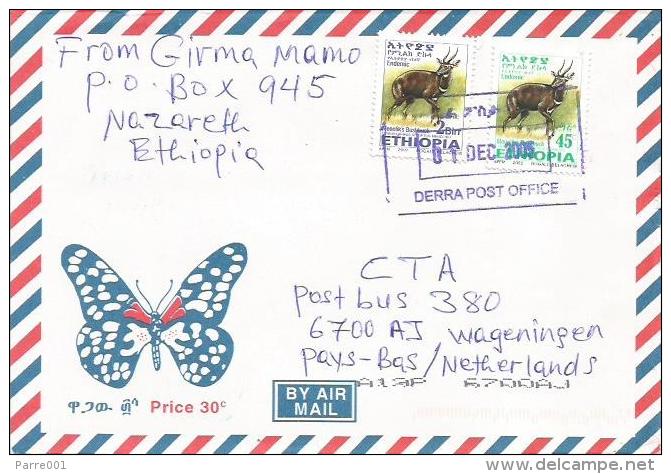 From Girma Mamo
P.O. Box 945
Nazareth
Ethiopia
ኢትዮጵያ
Endemic
Menelik's Bushbuck
2 Birr
ETHIOPIA
ኢትዮጵያ
Endemic
45
ETHIOPIA
01 DEC 2005
DERRA POST OFFICE
CTA
Postbus 380
6700 AJ Wageningen
Pays-Bas/Netherlands
6700AJ
BY AIR
MAIL
ዋጋው ፴ሳ Price 30c
Parre001